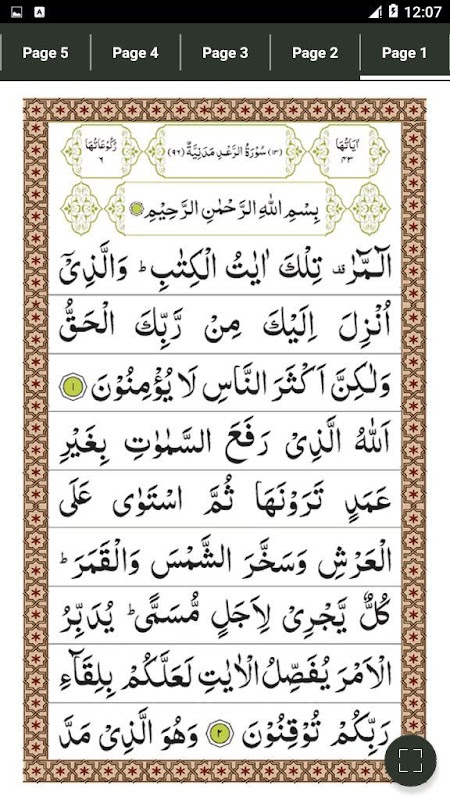 12:07
Page 5 Page 4 Page 3 Page 2 Page 1
اٰیَاتُهَا ۴۳
(۱۳) سُوْرَةُ الرَّعْدِ مَدَنِیَّةٌ (۹۶)
رُكُوْعَاتُهَا ۶
بِسْمِ اللّٰهِ الرَّحْمٰنِ الرَّحِیْمِ
الٓـمّٓرٰ ۫ تِلْكَ اٰیٰتُ الْكِتٰبِ ؕ وَالَّذِیْۤ
اُنْزِلَ اِلَیْكَ مِنْ رَّبِّكَ الْحَقُّ
وَلٰكِنَّ اَكْثَرَ النَّاسِ لَا یُؤْمِنُوْنَ ۱
اَللّٰهُ الَّذِیْ رَفَعَ السَّمٰوٰتِ بِغَیْرِ
عَمَدٍ تَرَوْنَهَا ثُمَّ اسْتَوٰی عَلَی
الْعَرْشِ وَسَخَّرَ الشَّمْسَ وَالْقَمَرَ ؕ
كُلٌّ یَّجْرِیْ لِاَجَلٍ مُّسَمًّی ؕ یُدَبِّرُ
الْاَمْرَ یُفَصِّلُ الْاٰیٰتِ لَعَلَّكُمْ بِلِقَآءِ
رَبِّكُمْ تُوْقِنُوْنَ ۲ وَهُوَ الَّذِیْ مَدَّ